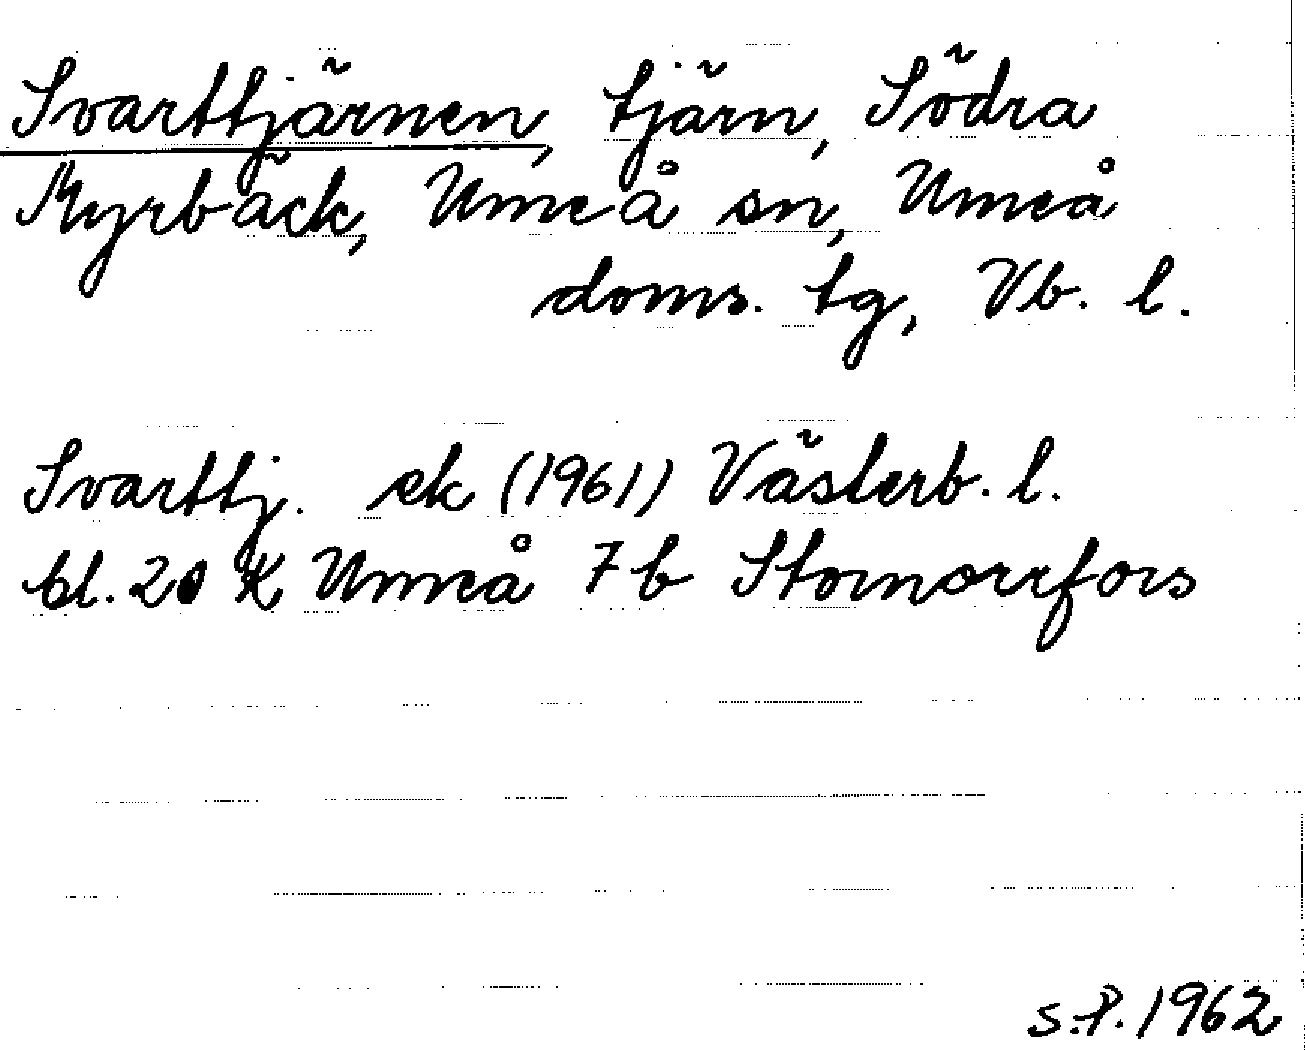 Svarttjärnen, tjärn, Södra
Myrbäck, Umeå sn, Umeå
doms. tg, Vb. l.
Svarttj. ek (1961) Västerb. l.
bl. 20 K Umeå 7b Stornorrfors
S.P. 1962